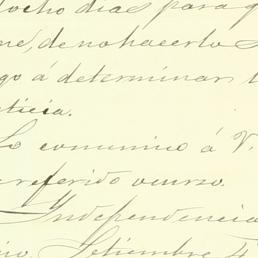 ocho dias para q
ne, de no hacerlo s
go á determinar l
sticia.
Lo comunico á V.
referido ocurso.
Independencia
Setiembre 4